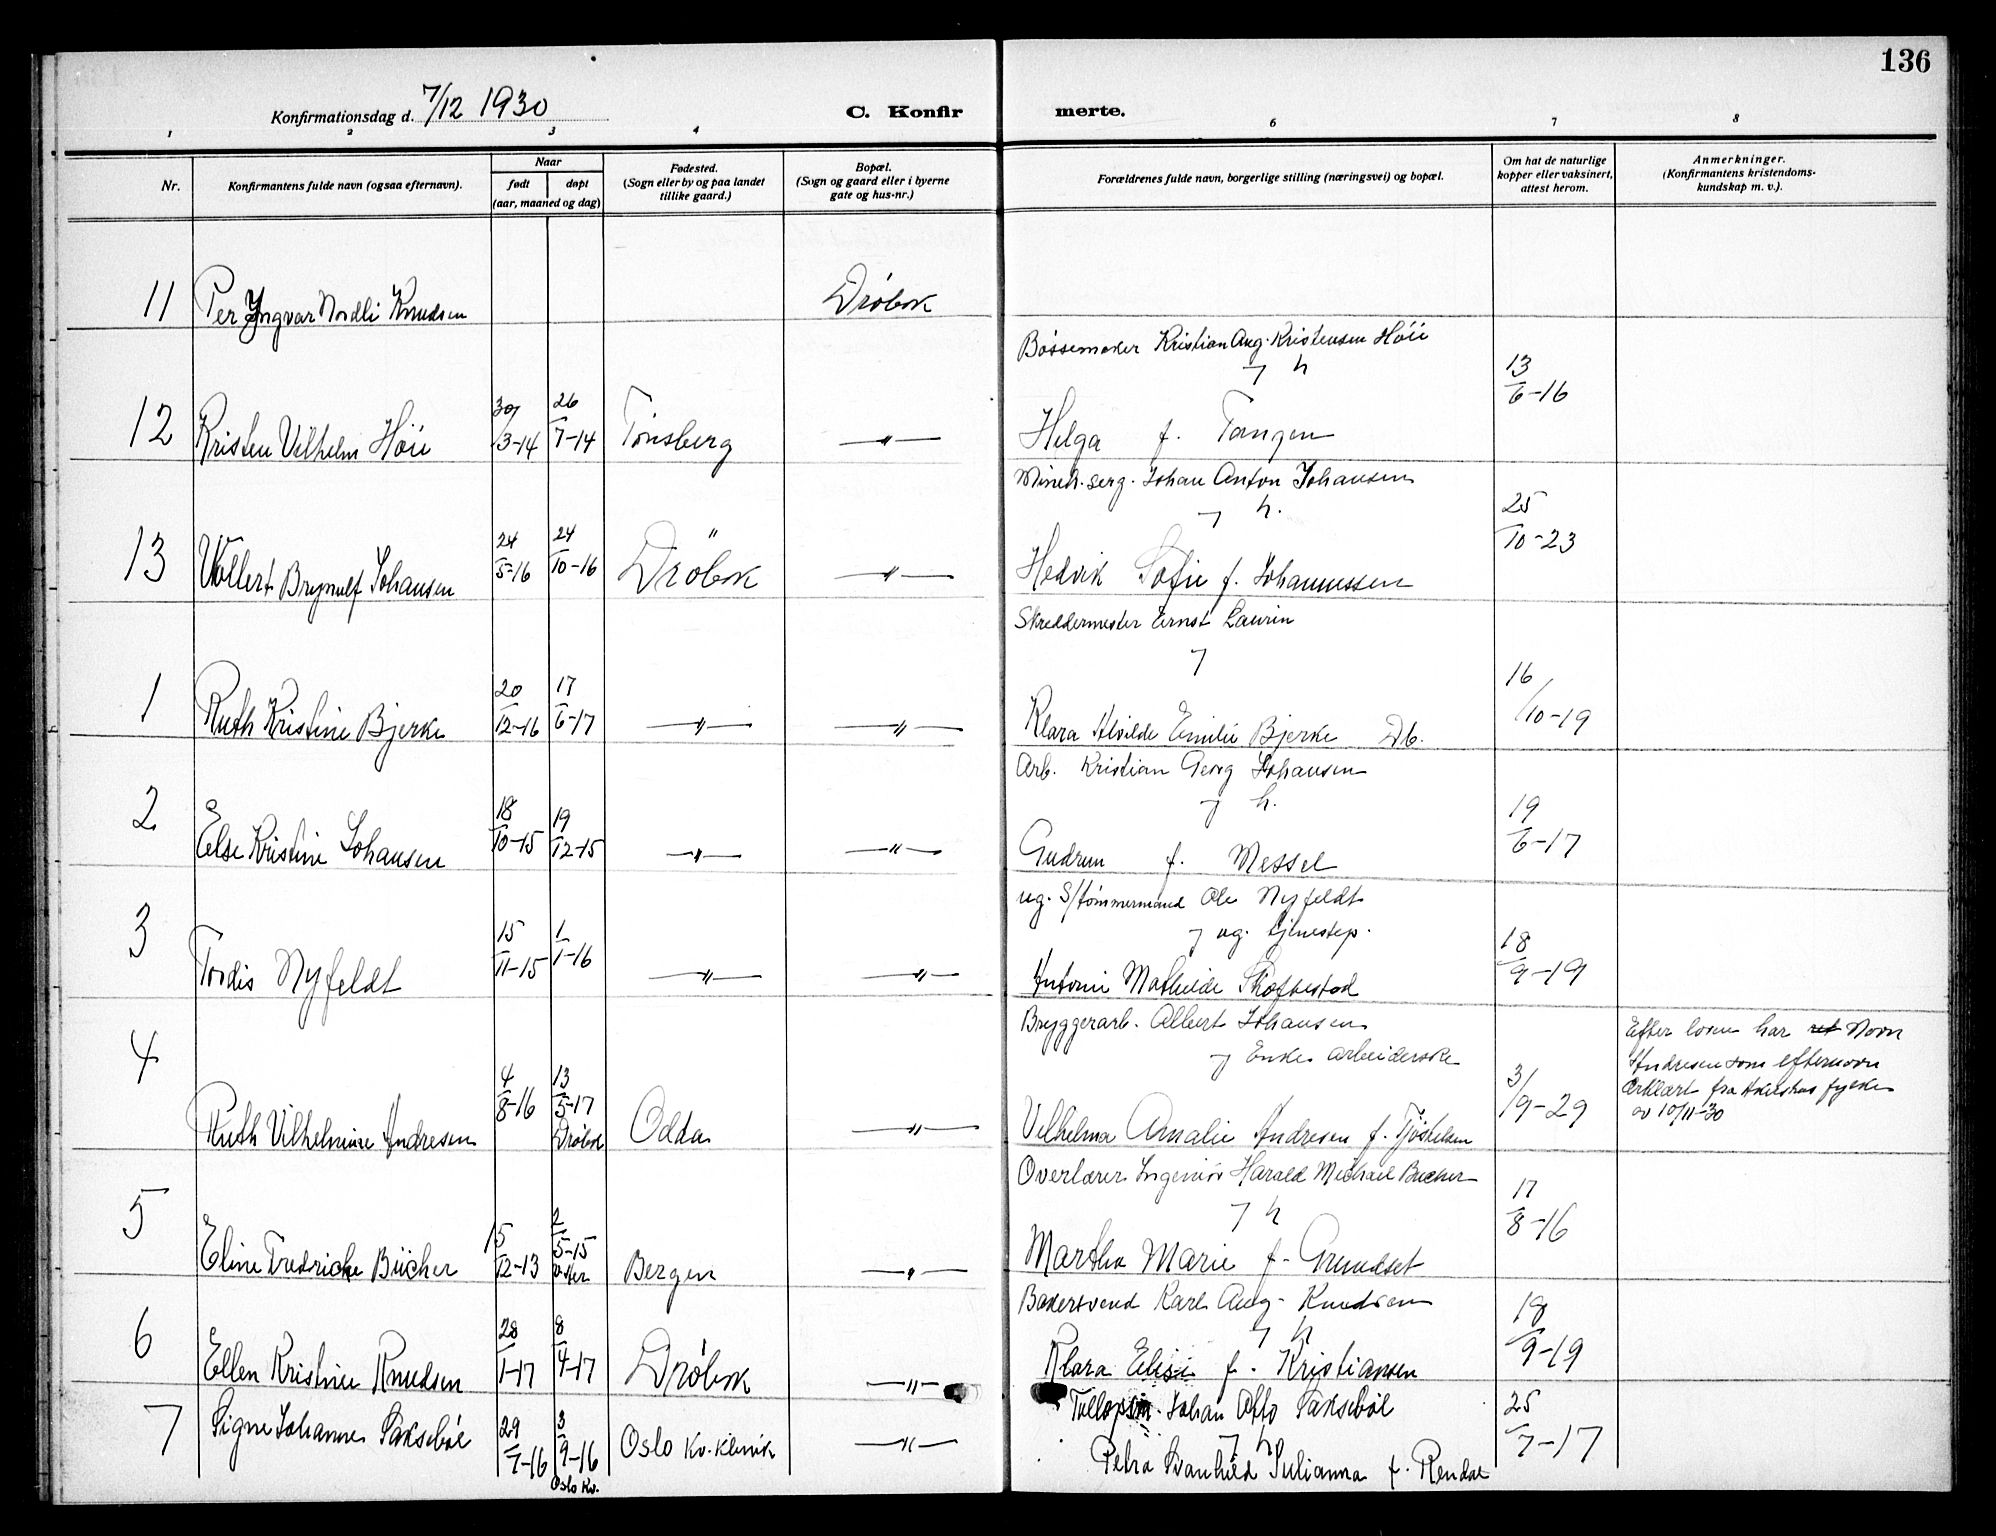 136
Konfirmationsdag d. 7/12 1930
C. Konfirmerte.
1 2 3 4 6 7 8
Nr.
Konfirmantens fulde navn (ogsaa efternavn).
Naar
født døpt
(aar, maaned og dag)
Fødested.
(Sogn eller by og paa landet
tillike gaard.)
Bopæl.
(Sogn og gaard eller i byerne
gate og hus-nr.)
Forældrenes fulde navn, borgerlige stilling (næringsvei) og bopæl.
Om hat de naturlige
kopper eller vaksinert,
attest herom.
Anmerkninger.
(Konfirmantens kristendoms-
kundskap m. v.).
11 Per Yngvar Nordli Knudsen Drøbak
Bøssemaker Kristian Aug. Kristensen Høii
h
12 Kristen Vilhelm Høii 30/3-14 26/7-14 Tønsberg —"— Helga f. Tangen 13/6-16
Minek. serg. Johan Anton Johansen
h.
13 Vollert Brynulf Johansen 24/5-16 24/10-16 Drøbak —"— Hedvik Sofie f. Johannessen 25/10-23
Skreddermester Ernst Laurin
1 Ruth Kristine Bjerke 20/12-16 17/6-17 —"— —"— Klara Alvilde Emilie Bjerke Db. 16/10-19
Arb. Kristian Georg Johansen
h.
2 Else Kristine Johansen 18/10-15 19/12-15 —"— —"— Gudrun f. Messel 19/6-17
ug. S/tømmermand Ole Nyfeldt
ug. tjenestep.
3 Tordis Nyfeldt 15/11-15 1/1-16 —"— —"— Antonie Mathilde 18/9-19
Bryggerarb. Albert Johansen
Enke arbeiderske
4 Ruth Vilhelmine Andresen 4/8-16 13/5-17 Drøbak Odda —"— Vilhelma Amalie Andresen f. 3/9-29
Efter loven har navn
Andresen som efternavn
erklært fra Akershus fylke
av 10/11-30
Overlærer Ingeniør Harald Michael Bücher
h
5 Eline Fredricke Bücher 15/12-13 2/5-15 Bergen —"— Martha Marie f. Grundset 17/8-16
Bakersvend Karl Aug. Knudsen
h
6 Ellen Kristine Knudsen 28/1-17 8/4-17 Drøbak —"— Klara Elise f. Kristiansen 18/9-19
Johan Otto Saksebøl
h
7 Signe Johanne Saksebøl 29/7-16 3/9-16 Oslo Kv. Oslo Kv. klinik —"— Petra Svanhild Julianna f. Rendal 25/7-17